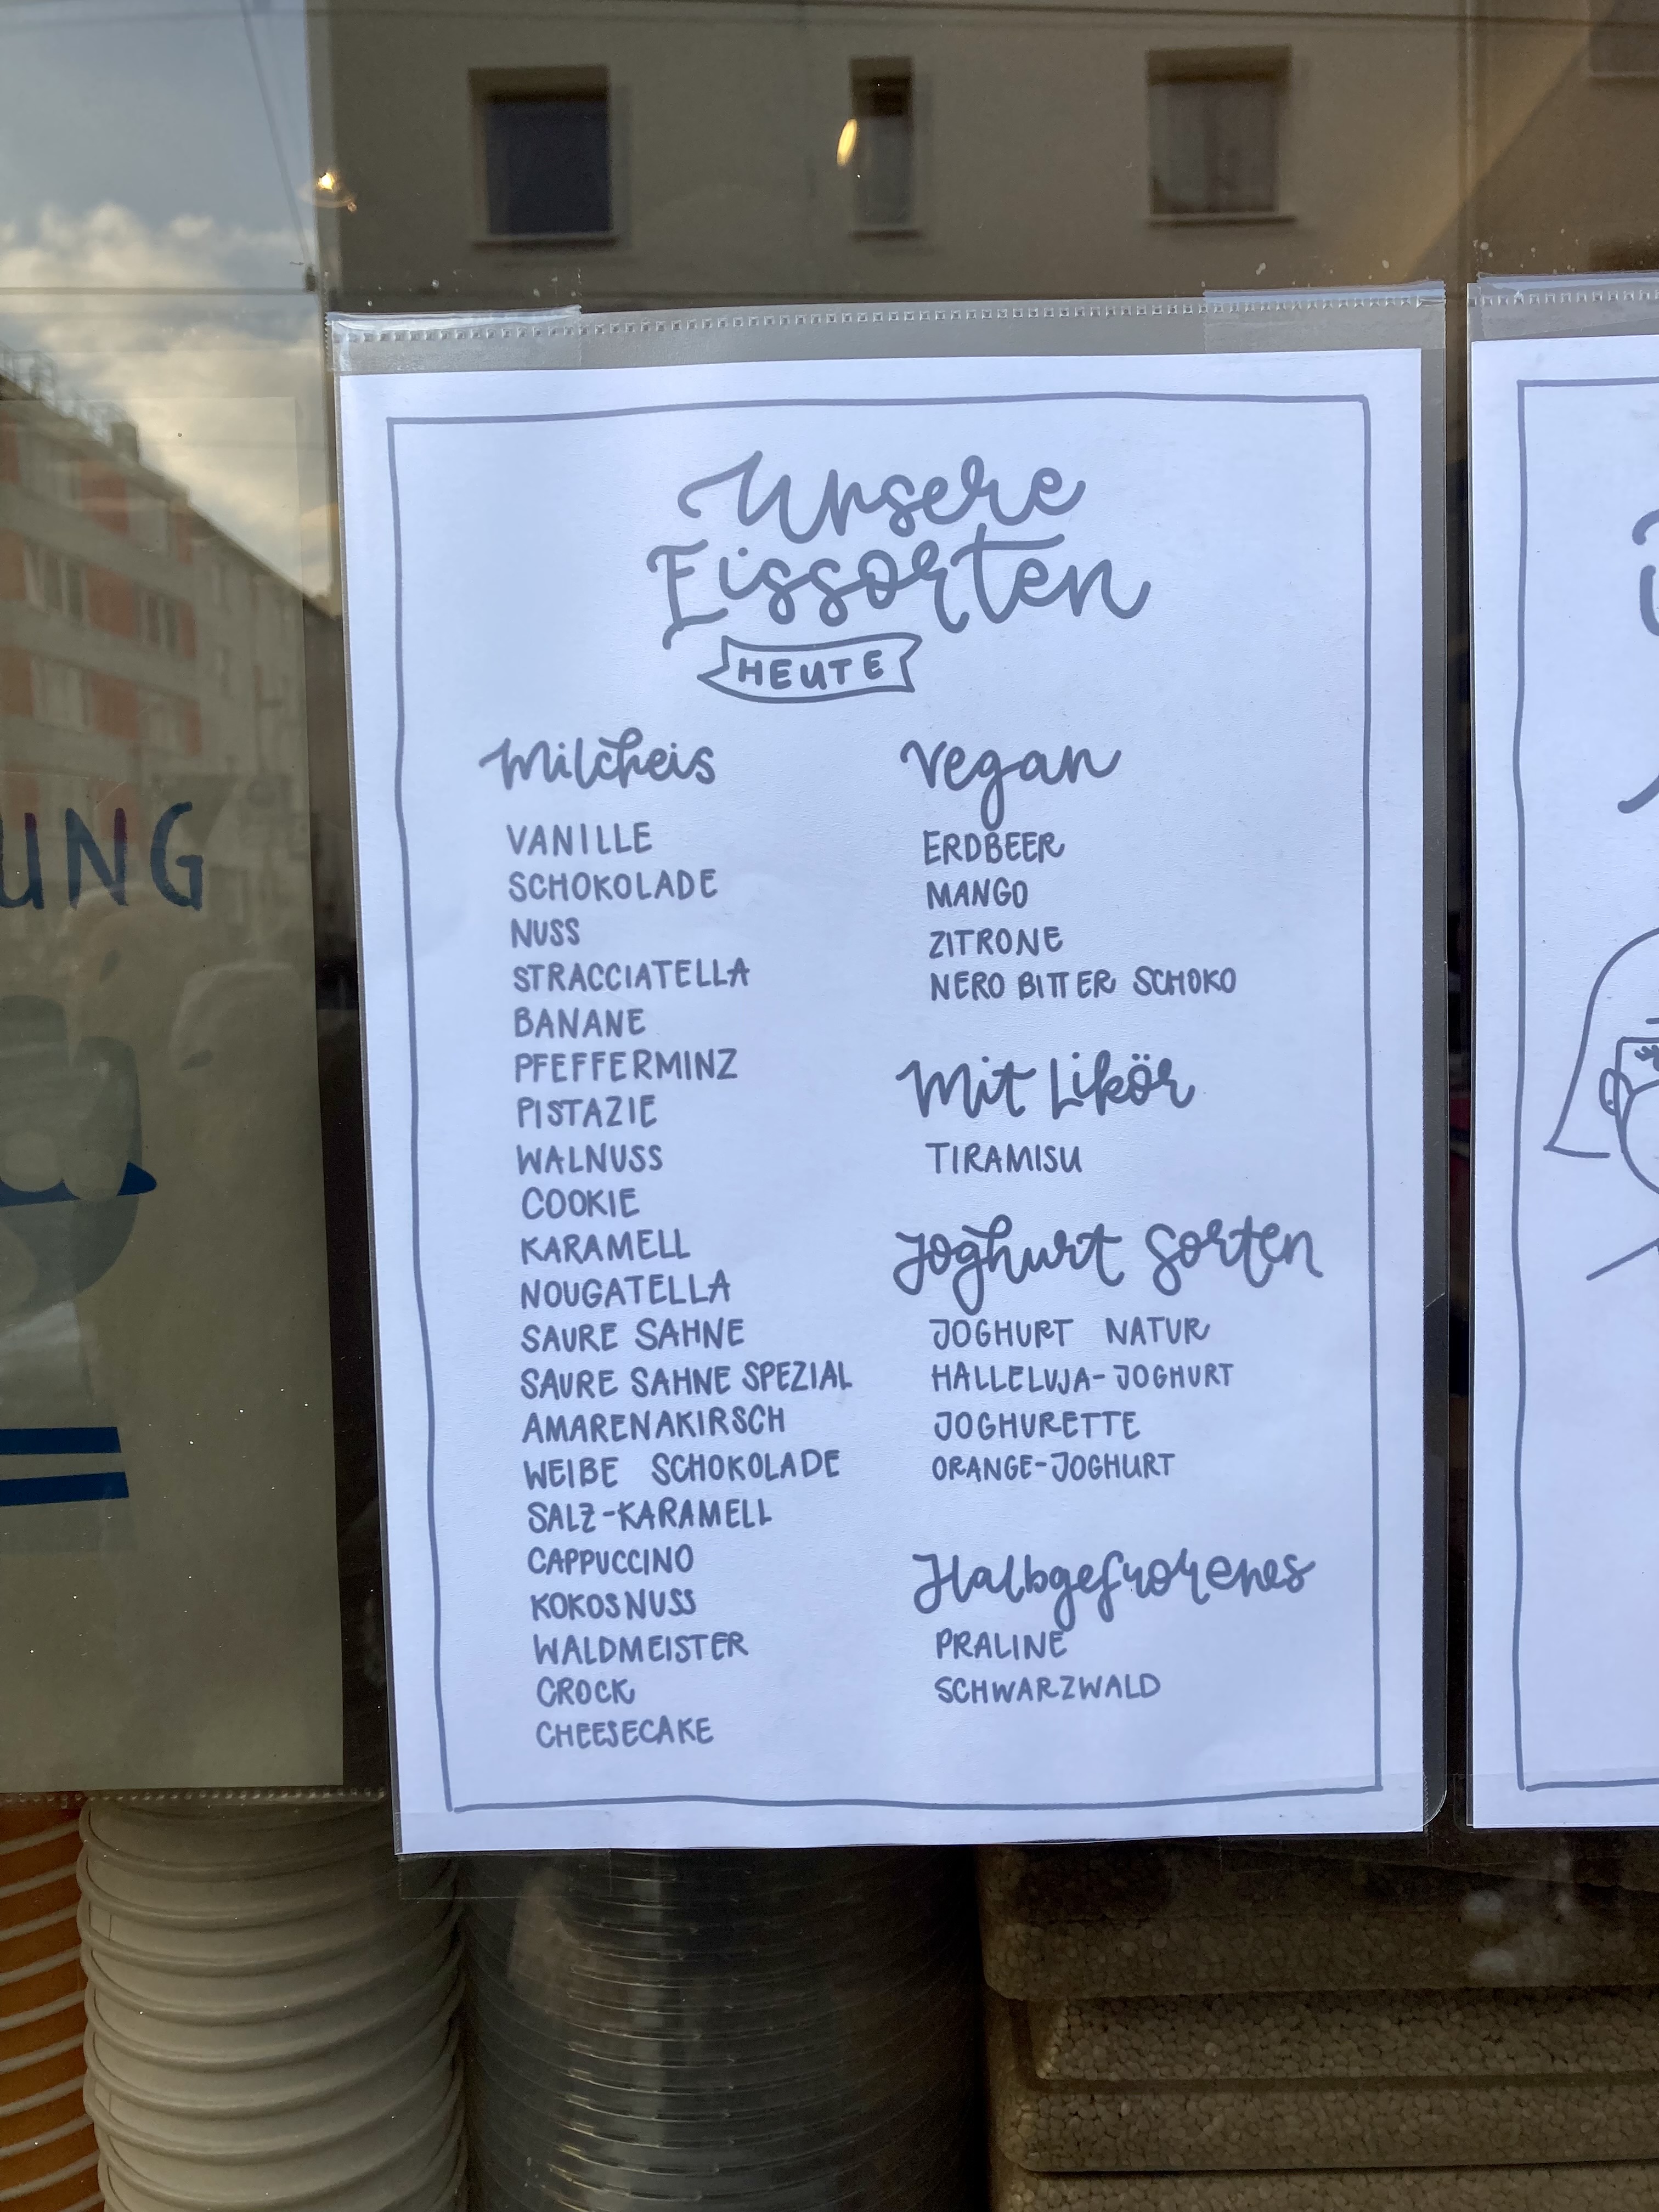 UNG
Unsere
Eissorten
HEUTE
Milcheis
VANILLE
SCHOKOLADE
NUSS
STRACCIATELLA
BANANE
PFEFFERMINZ
PISTAZIE
WALNUSS
COOKIE
KARAMELL
NOUGATELLA
SAURE SAHNE
SAURE SAHNE SPEZIAL
AMARENAKIRSCH
WEIßE SCHOKOLADE
SALZ-KARAMELL
CAPPUCCINO
KOKOSNUSS
WALDMEISTER
CROCK
CHEESECAKE
Vegan
ERDBEER
MANGO
ZITRONE
NERO BITTER SCHOKO
Mit Likör
TIRAMISU
Joghurt Sorten
JOGHURT NATUR
HALLELUJA-JOGHURT
JOGHURETTE
ORANGE-JOGHURT
Halbgefrorenes
PRALINE
SCHWARZWALD